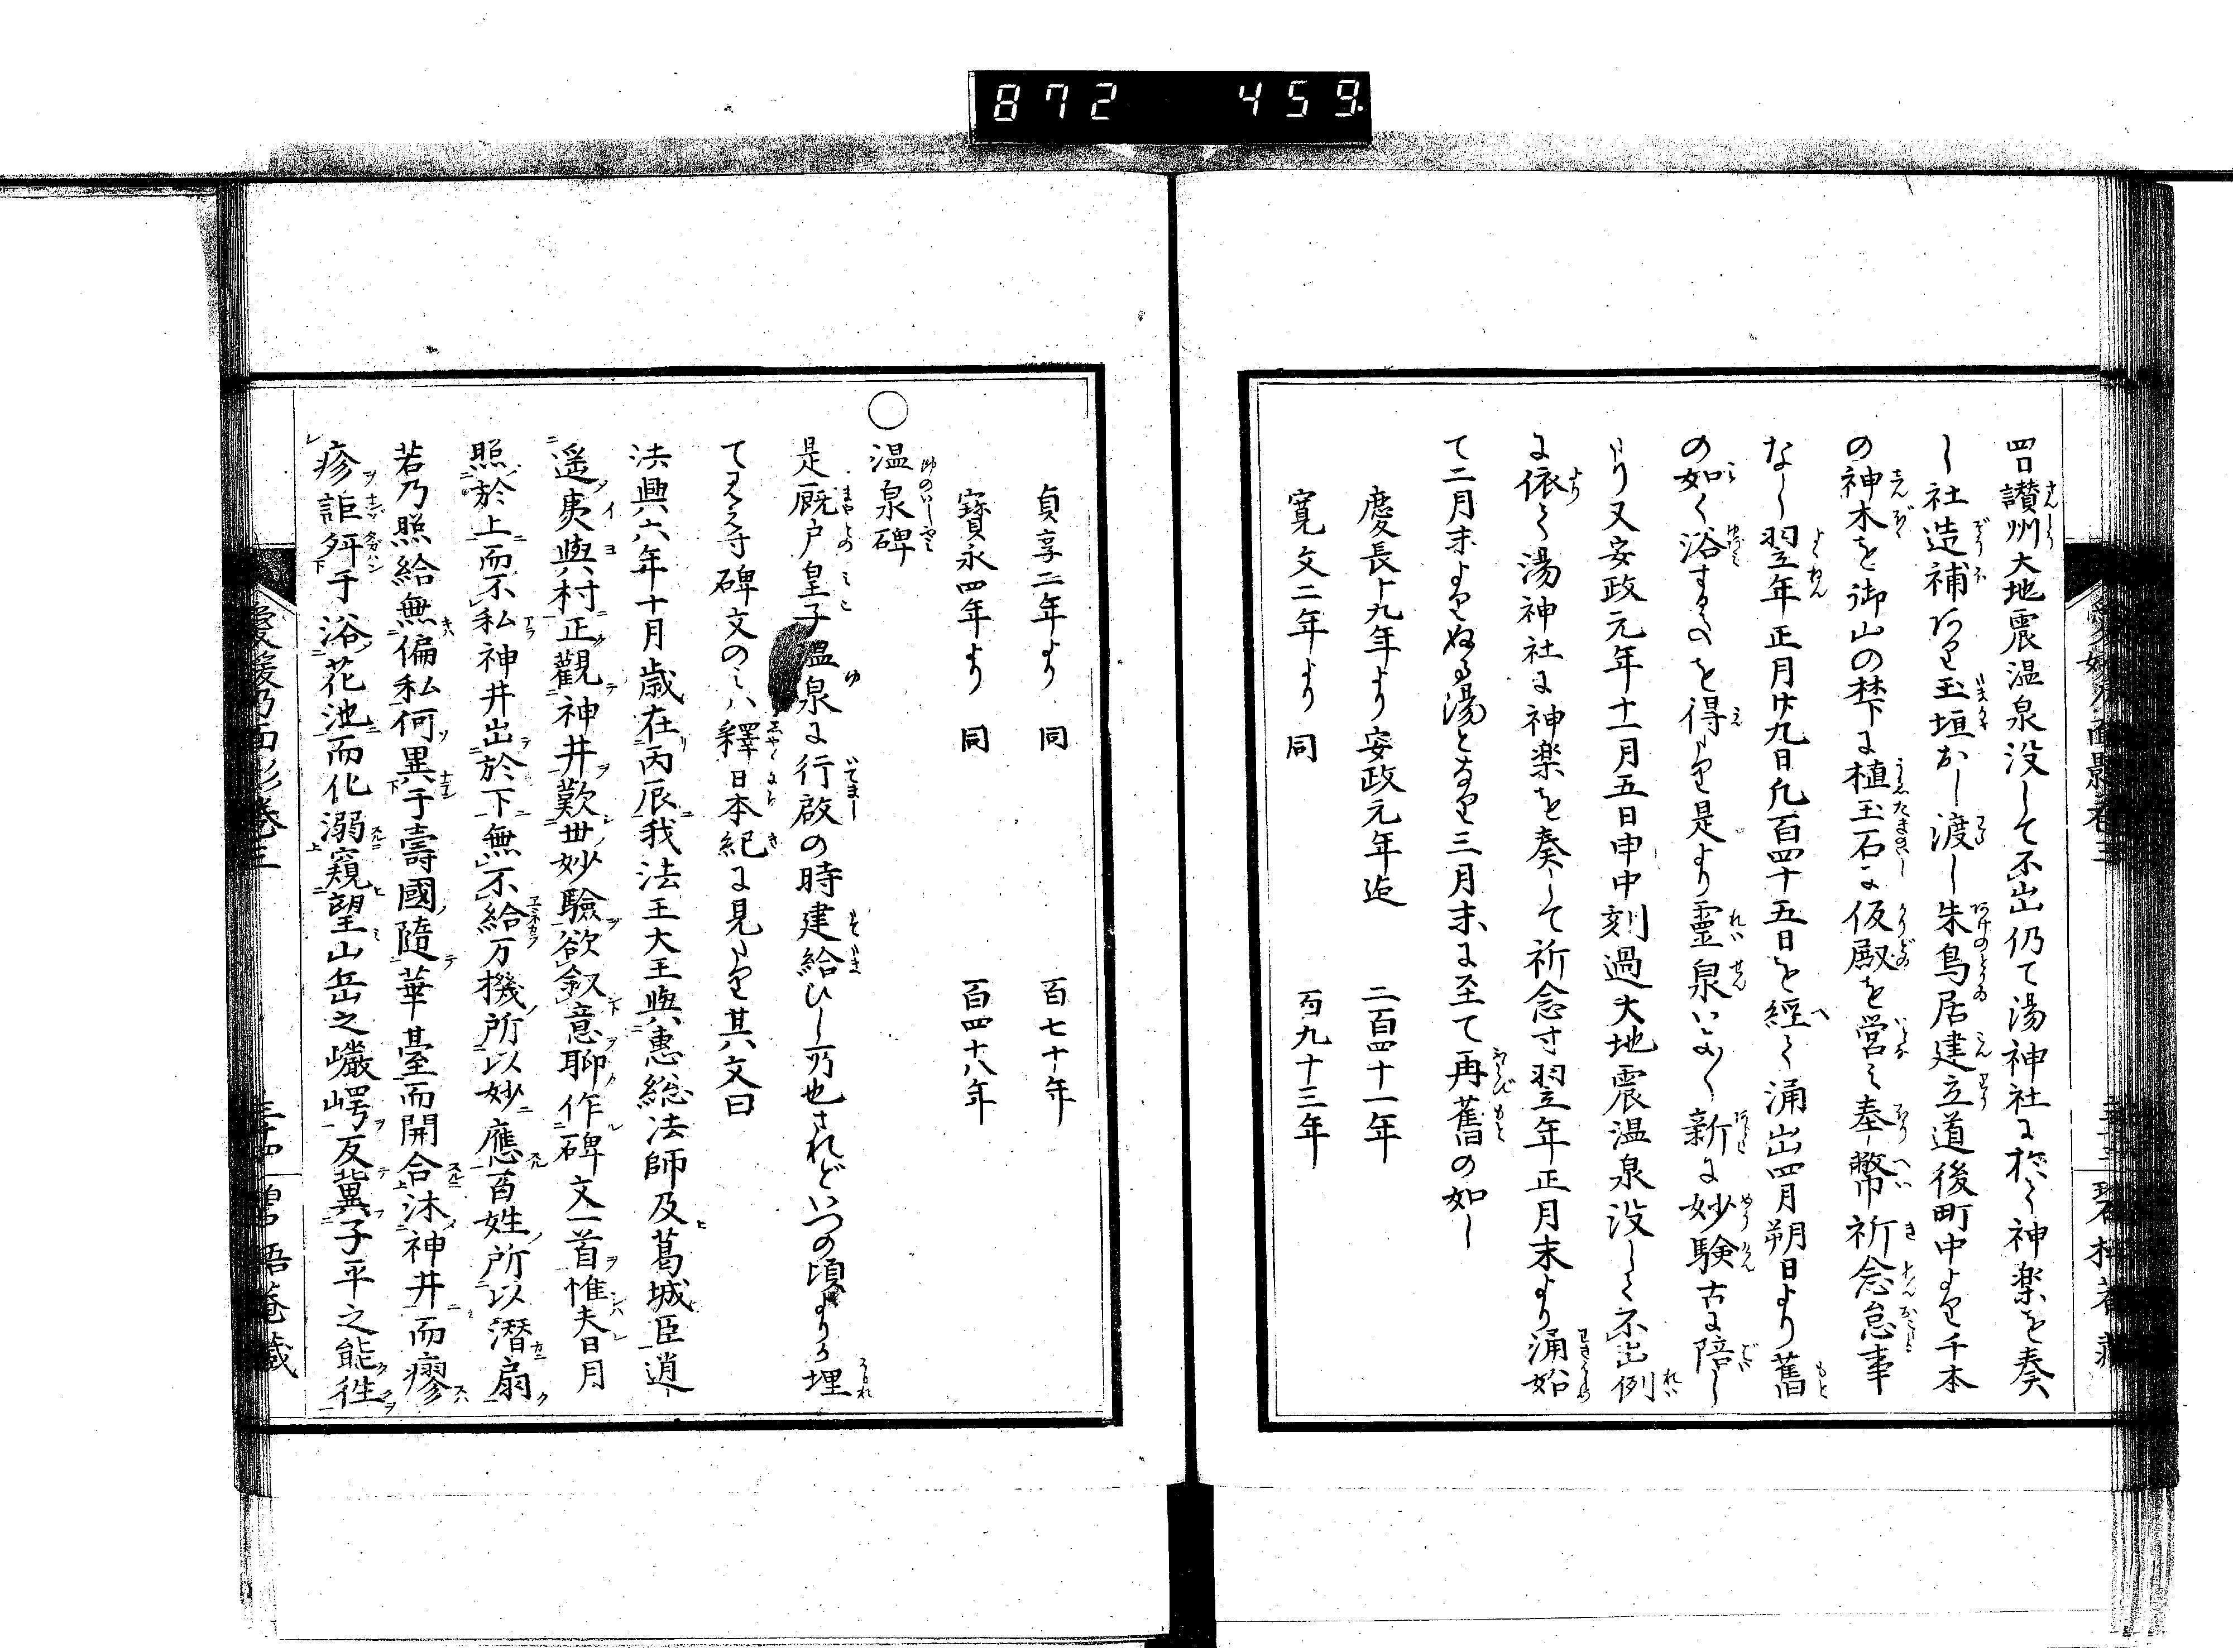 872 459
四日讃州大地震温泉没して不出仍て湯神社に於て神楽を奏
し社造補ありて玉垣おし渡し朱鳥居建立道後町中よりて千本
の神木を御山の林下に植玉石に仮殿を営て奉幣祈念怠事
なし翌年正月廿九日凡百四十五日を経て涌出四月朔日より舊
の如く浴するを得たり是より霊泉いよ〳〵新に妙験古に陪し
けり又安政元年十一月五日申中刻過大地震温泉没して不出例
に依て湯神社に神楽を奏して祈念す翌年正月末より涌始
て二月末よりぬる湯となり三月末に至て再舊の如し
慶長十九年より安政元年迄 二百四十一年
寛文二年より 同 百九十三年
貞享二年より 同 百七十年
寶永四年より 同 百四十八年
○温泉碑
是厩戸皇子温泉に行啓の時建給ひし所也されどいつの頃よりか埋
て見えず碑文のみハ釋日本紀に見えたり其文曰
法興六年十月歳在丙辰我法王大王與惠総法師及葛城臣逍
遥夷與村正觀神井歎世妙驗欲叙意聊作碑文一首惟夫日月
照於上而不私神井出於下無不給万機所以妙應百姓所以潛扇
若乃照給無偏私何異于壽國隨華臺而開合沐神井而瘳
疹詎舛于浴花池而化溺窺望山岳之巗崿反冀子平之能徃
愛媛乃面影巻三 三十四 碧梧菴藏